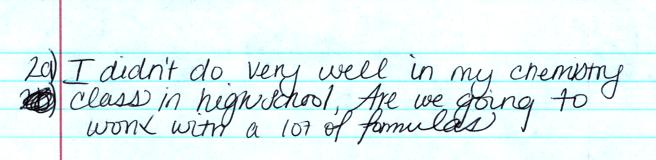 2a) I didn't do very well in my chemistry
class in high school, Are we going to
work with a lot of formulas